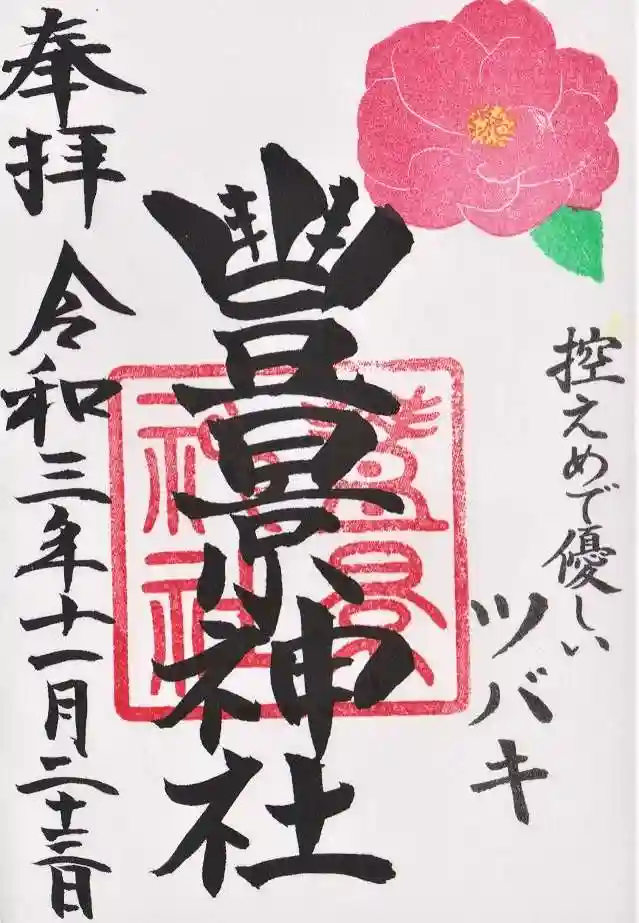 控えめで優しい
ツバキ
豐景神社
豐景
神社
奉拝 令和三年十一月二十三日